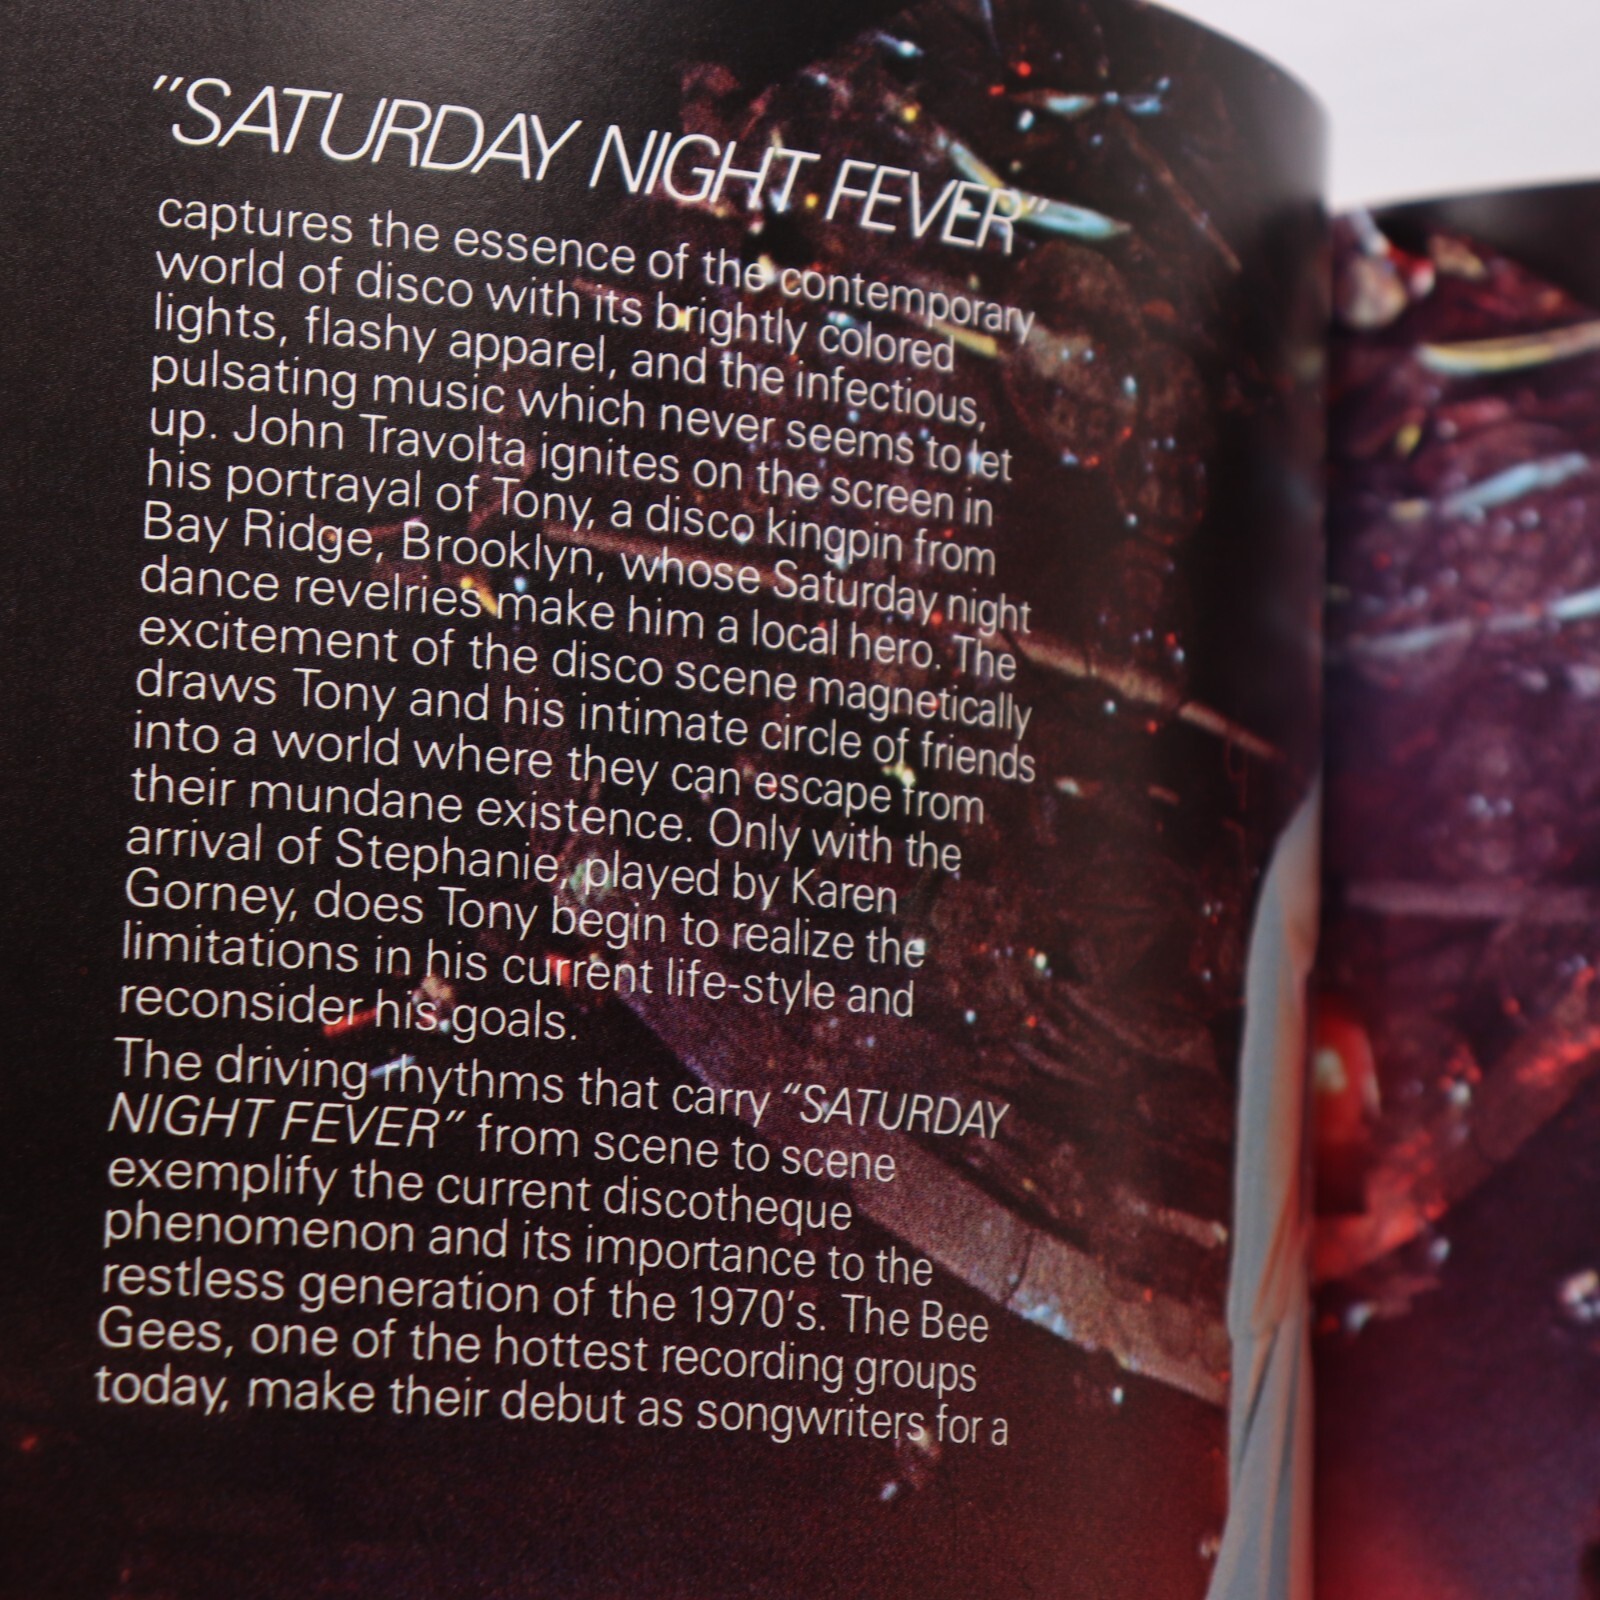 "SATURDAY NIGHT FEVER"
captures the essence of the contemporary
world of disco with its brightly colored
lights, flashy apparel, and the infectious,
pulsating music which never seems to let
up. John Travolta ignites on the screen in
his portrayal of Tony, a disco kingpin from
Bay Ridge, Brooklyn, whose Saturday night
dance revelries make him a local hero. The
excitement of the disco scene magnetically
draws Tony and his intimate circle of friends
into a world where they can escape from
their mundane existence. Only with the
arrival of Stephanie, played by Karen
Gorney, does Tony begin to realize the
limitations in his current life-style and
reconsider his goals.
The driving rhythms that carry "SATURDAY
NIGHT FEVER" from scene to scene
exemplify the current discotheque
phenomenon and its importance to the
restless generation of the 1970's. The Bee
Gees, one of the hottest recording groups
today, make their debut as songwriters for a